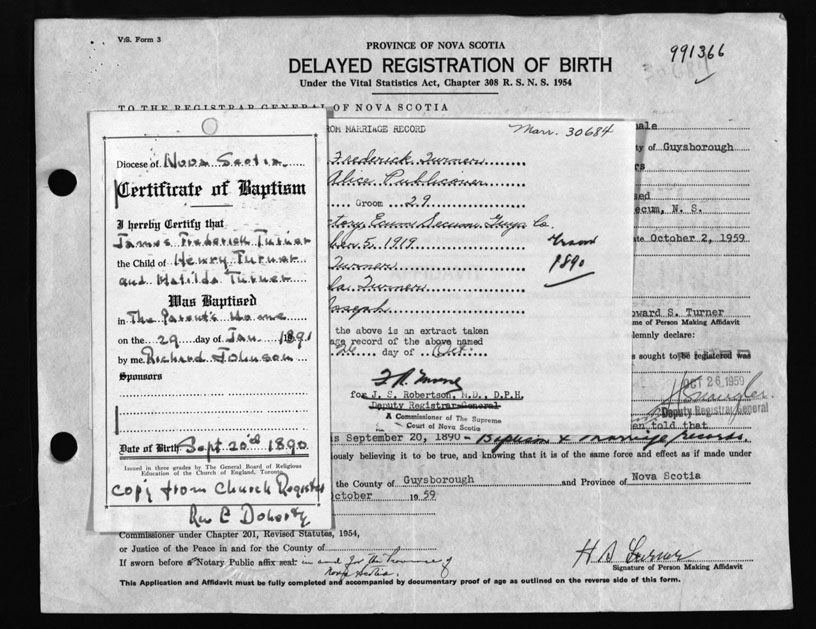 V.S. Form 3
991366
PROVINCE OF NOVA SCOTIA
DELAYED REGISTRATION OF BIRTH
Under the Vital Statistics Act, Chapter 308 R. S. N. S. 1954
TO THE REGISTRAR GENERAL OF NOVA SCOTIA
Diocese of Nova Scotia
Certificate of Baptism
I hereby Certify that
James Frederick Turner
the Child of Henry Turner
and Matilda Turner
Was Baptised
in The Parent's Home
on the 29 day of Jan. 1891
by me Richard Johnson
Sponsors
Date of Birth Sept 20th 1890
Issued in three grades by The General Board of Religious
Education of the Church of England, Toronto
Copy from Church Register
Rev E Doherty
ROM MARRIAGE RECORD
Marr. 30684
Frederick Turner
Alice Publicover
Groom 29
ctory, Ecum Secum Guys Co.
ber 5, 1919
1890
Turner
Turner
Joseph
the above is an extract taken
age record of the above named
26 day of Oct.
for J. S. Robertson, M.D., D.P.H.
Deputy Registrar General
A Commissioner of The Supreme
Court of Nova Scotia
male
ty of Guysborough
rs
sed
ecum, N. S.
ate October 2, 1959
oward S. Turner
me of Person Making Affidavit
lemnly declare:
s sought to be registered was
OCT 26 1959
Deputy Registrar General
en told that
is September 20, 1890 - Baptism & marriage records.
iously believing it to be true, and knowing that it is of the same force and effect as if made under
the County of Guysborough and Province of Nova Scotia
October 1959
Commissioner under Chapter 201, Revised Statutes, 1954,
or Justice of the Peace in and for the County of
If sworn before a Notary Public affix seal. in and for the Province of
Nova Scotia.
H S Turner
Signature of Person Making Affidavit
This Application and Affidavit must be fully completed and accompanied by documentary proof of age as outlined on the reverse side of this form.